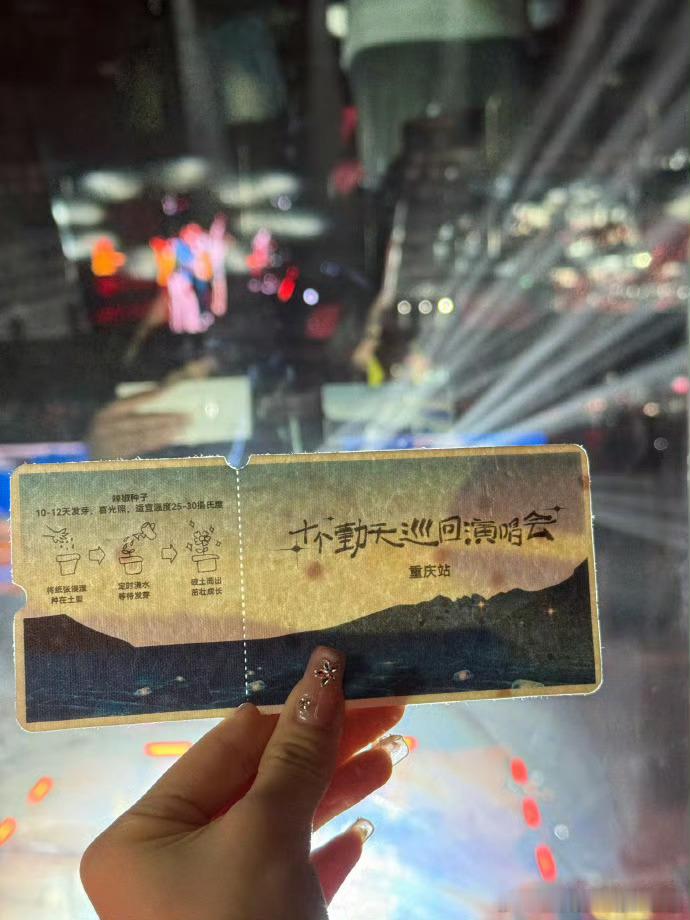 辣椒种子
10-12天发芽,喜光照,适宜温度25-30摄氏度
将纸张浸湿
种在土里
定时浇水
等待发芽
破土而出
茁壮成长
怀動天巡回演唱会
重庆站